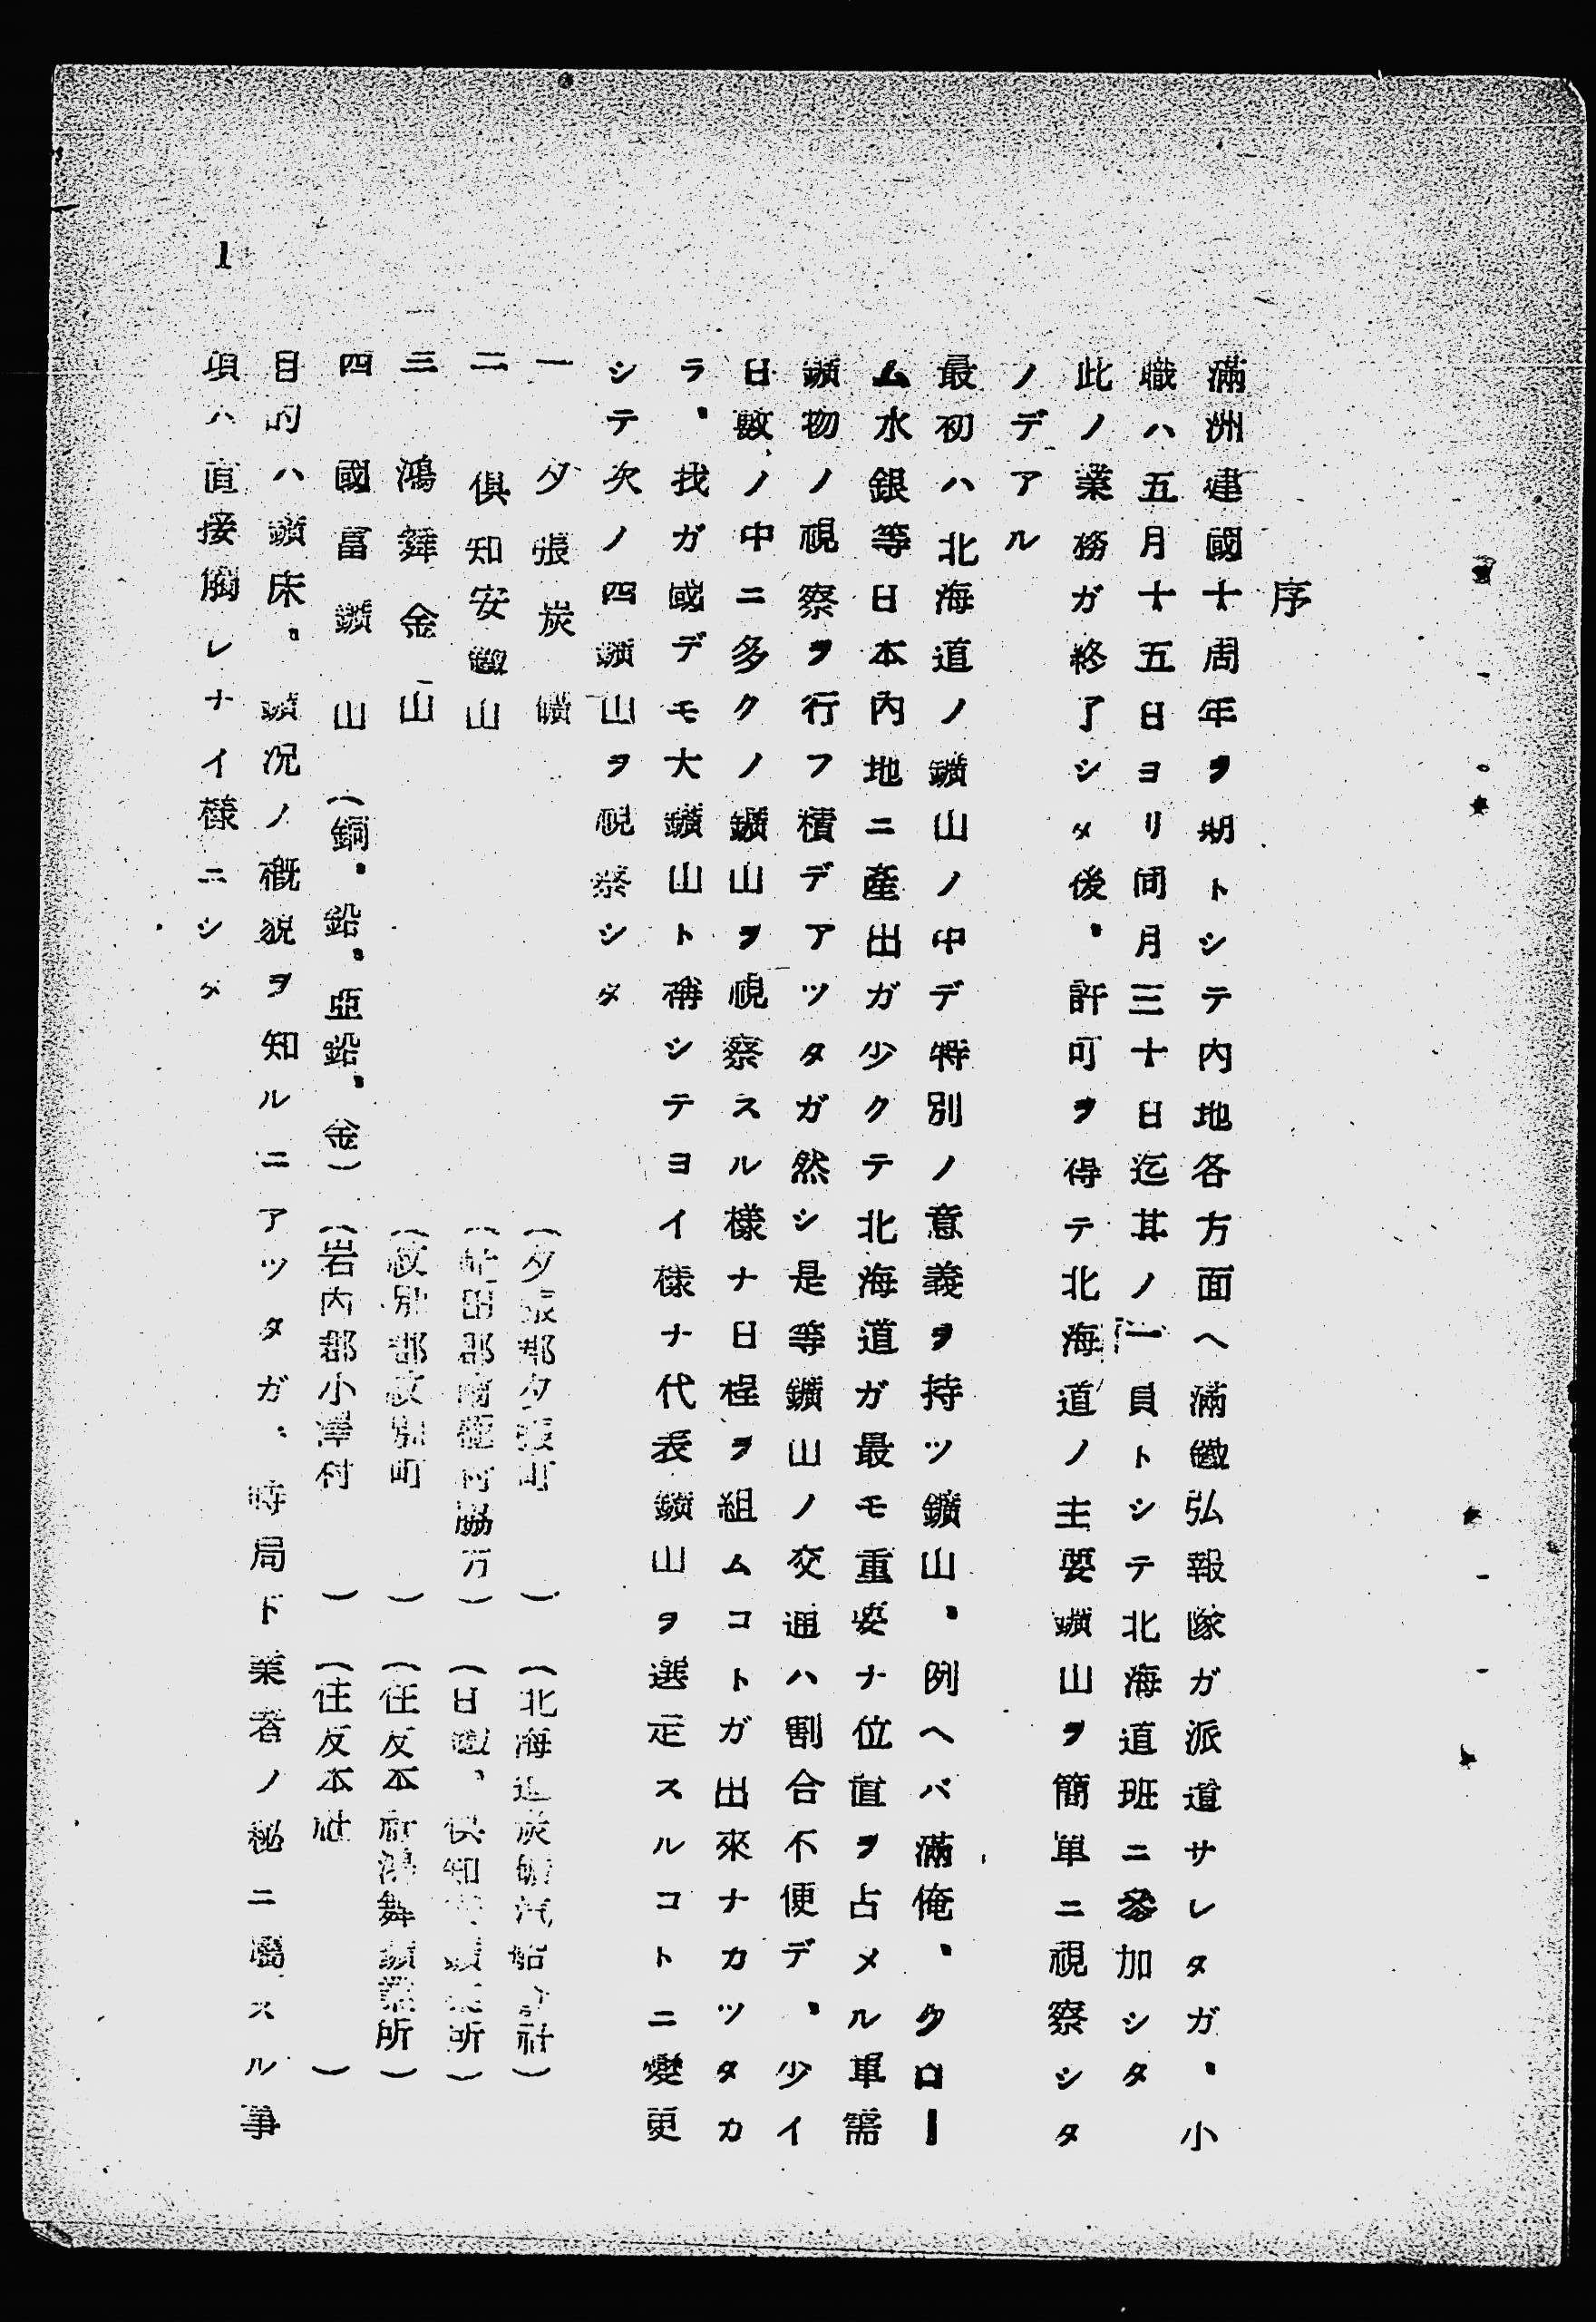 序
滿洲建國十周年ヲ期トシテ内地各方面ヘ滿鐵弘報隊ガ派遣サレタガ、小
職ハ五月十五日ヨリ同月三十日迄其ノ一員トシテ北海道班ニ參加シタ
此ノ業務ガ終了シタ後、許可ヲ得テ北海道ノ主要鑛山ヲ簡單ニ視察シタ
ノデアル
最初ハ北海道ノ鑛山ノ中デ特別ノ意義ヲ持ツ鑛山、例ヘバ滿俺、クロー
ム水銀等日本内地ニ產出ガ少クテ北海道ガ最モ重要ナ位置ヲ占メル軍需
鑛物ノ視察ヲ行フ積デアツタガ然シ是等鑛山ノ交通ハ割合不便デ、少イ
日數ノ中ニ多クノ鑛山ヲ視察スル樣ナ日程ヲ組ムコトガ出來ナカツタカ
ラ、我ガ國デモ大鑛山ト稱シテヨイ樣ナ代表鑛山ヲ選定スルコトニ變更
シテ次ノ四鑛山ヲ視察シタ
一 夕張炭礦 (夕張郡夕張町) (北海道炭礦汽船會社)
二 倶知安鐵山 (虻田郡 村脇方) (日鐵、倶知安鑛業所)
三 鴻舞金山 (紋別郡紋別町) (住友本社鴻舞鑛業所)
四 國富鑛山 (銅、鉛、亞鉛、金) (岩内郡小澤村) (住友本社)
目的ハ鑛床、鑛況ノ概貌ヲ知ルニアツタガ、時局下業者ノ秘ニ屬スル事
項ハ直接觸レナイ樣ニシタ
1